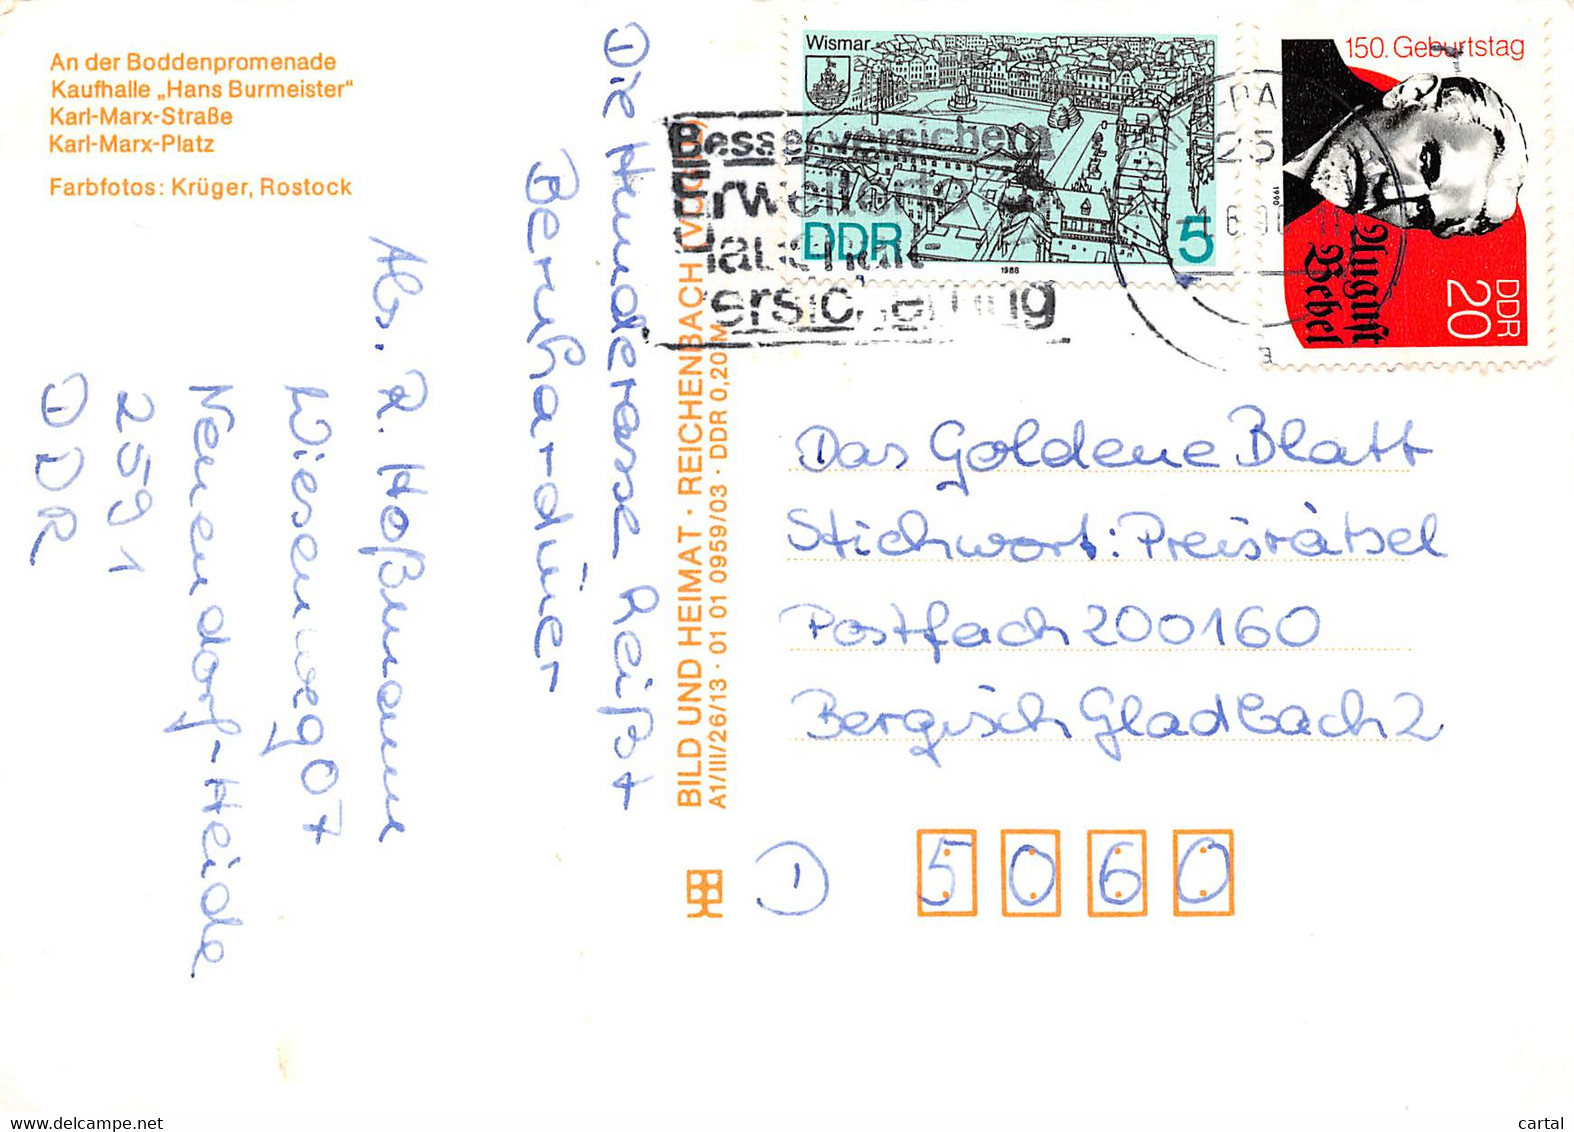 An der Boddenpromenade
Kaufhalle „Hans Burmeister“
Karl-Marx-Straße
Karl-Marx-Platz
Farbfotos: Krüger, Rostock
Die Hunderasse heißt
Bernhardiner
Abs. R. Hoßmann
Wiesenweg 07
Neuendorf-Heide
2591
DDR
BILD UND HEIMAT · REICHENBACH
A1/III/26/13 · 01 01 0959/03 · DDR 0,20 M
Wismar
DDR
5
1988
150. Geburtstag
August
Bebel
DDR
20
1990
Besser versichern
Erweiterte
Haushalt
versicherung
25
Das Goldene Blatt
Stichwort: Preisrätsel
Postfach 200160
Bergisch Gladbach 2
D 5060
cartal